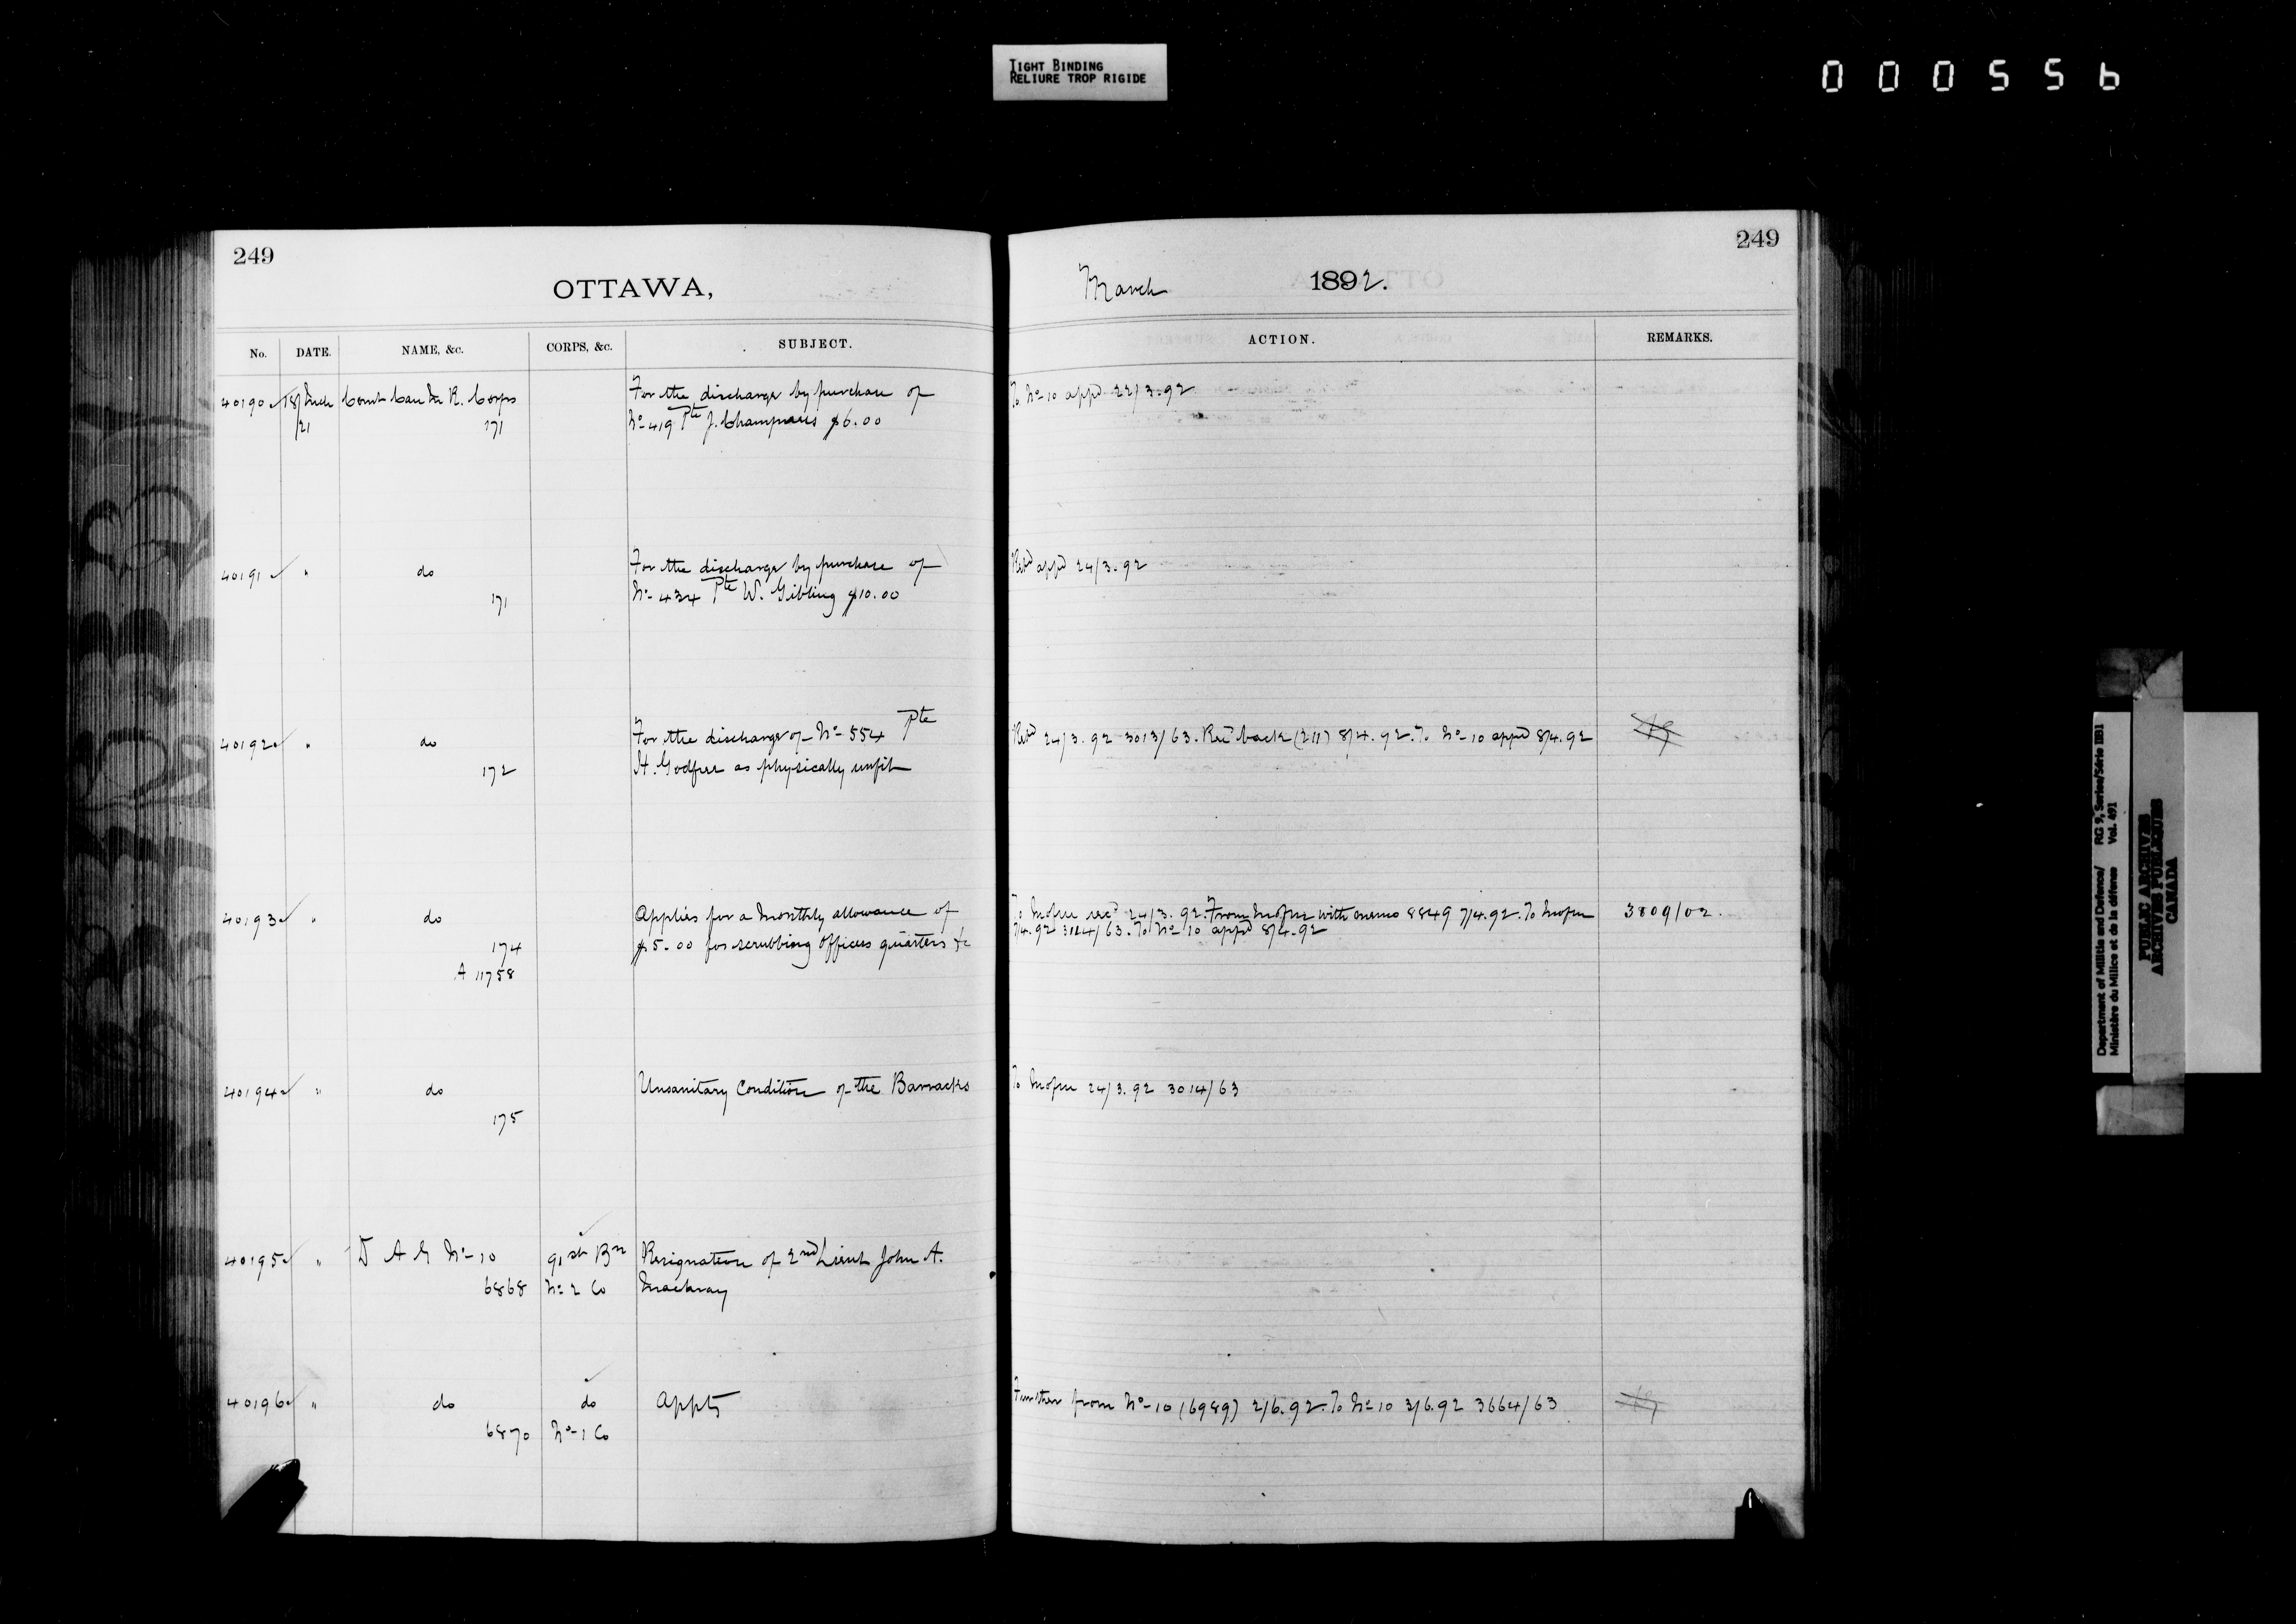 TIGHT BINDING
RELIURE TROP RIGIDE
000556
249
OTTAWA,
No. DATE. NAME, &c. CORPS, &c. SUBJECT.
40190 18/Mch Comt Can M R. Corps For the discharge by purchase of
/21 171 No 419 Pte J. $6.00
40191 " do For the discharge by purchase of
171 No 434 Pte W. Gibling $10.00
40192 " do For the discharge of No 554 Pte
172 H. Godfree as physically unfit
40193 " do Applies for a Monthly allowance of
174 $5.00 for scrubbing Officers quarters &c
A 11758
40194 " do Unsanitary Condition of the Barracks
175
40195 " D A G No 10 91st Bn Resignation of 2nd Lieut John A.
6868 No 2 Co
40196 " do do Appts
6870 No 1 Co
249
March 1892.
ACTION. REMARKS.
To No 10 appd 22/3.92
Retd appd 24/3.92
Retd 24/3.92 3013/63. Recd back (211) 8/4.92. To No 10 appd 8/4.92
To recd 24/3.92. From with memo 8849 7/4.92. To 3809/02.
7/4.92 /63. To No 10 appd 8/4.92
To 24/3.92 3014/63
Further from No 10 (6989) 2/6.92. To No 10 3/6.92 3664/63
Department of Militia and Defence/ RG 9, Series/Série IIB1
Ministère du Milice et de la défense Vol. 491
PUBLIC ARCHIVES
ARCHIVES PUBLIQUES
CANADA